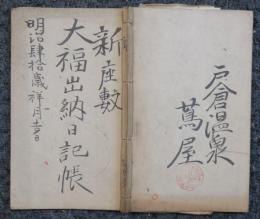 戸倉温泉
蔦屋
新座敷
大福出納日記帳
明治肆拾歳祥月吉日